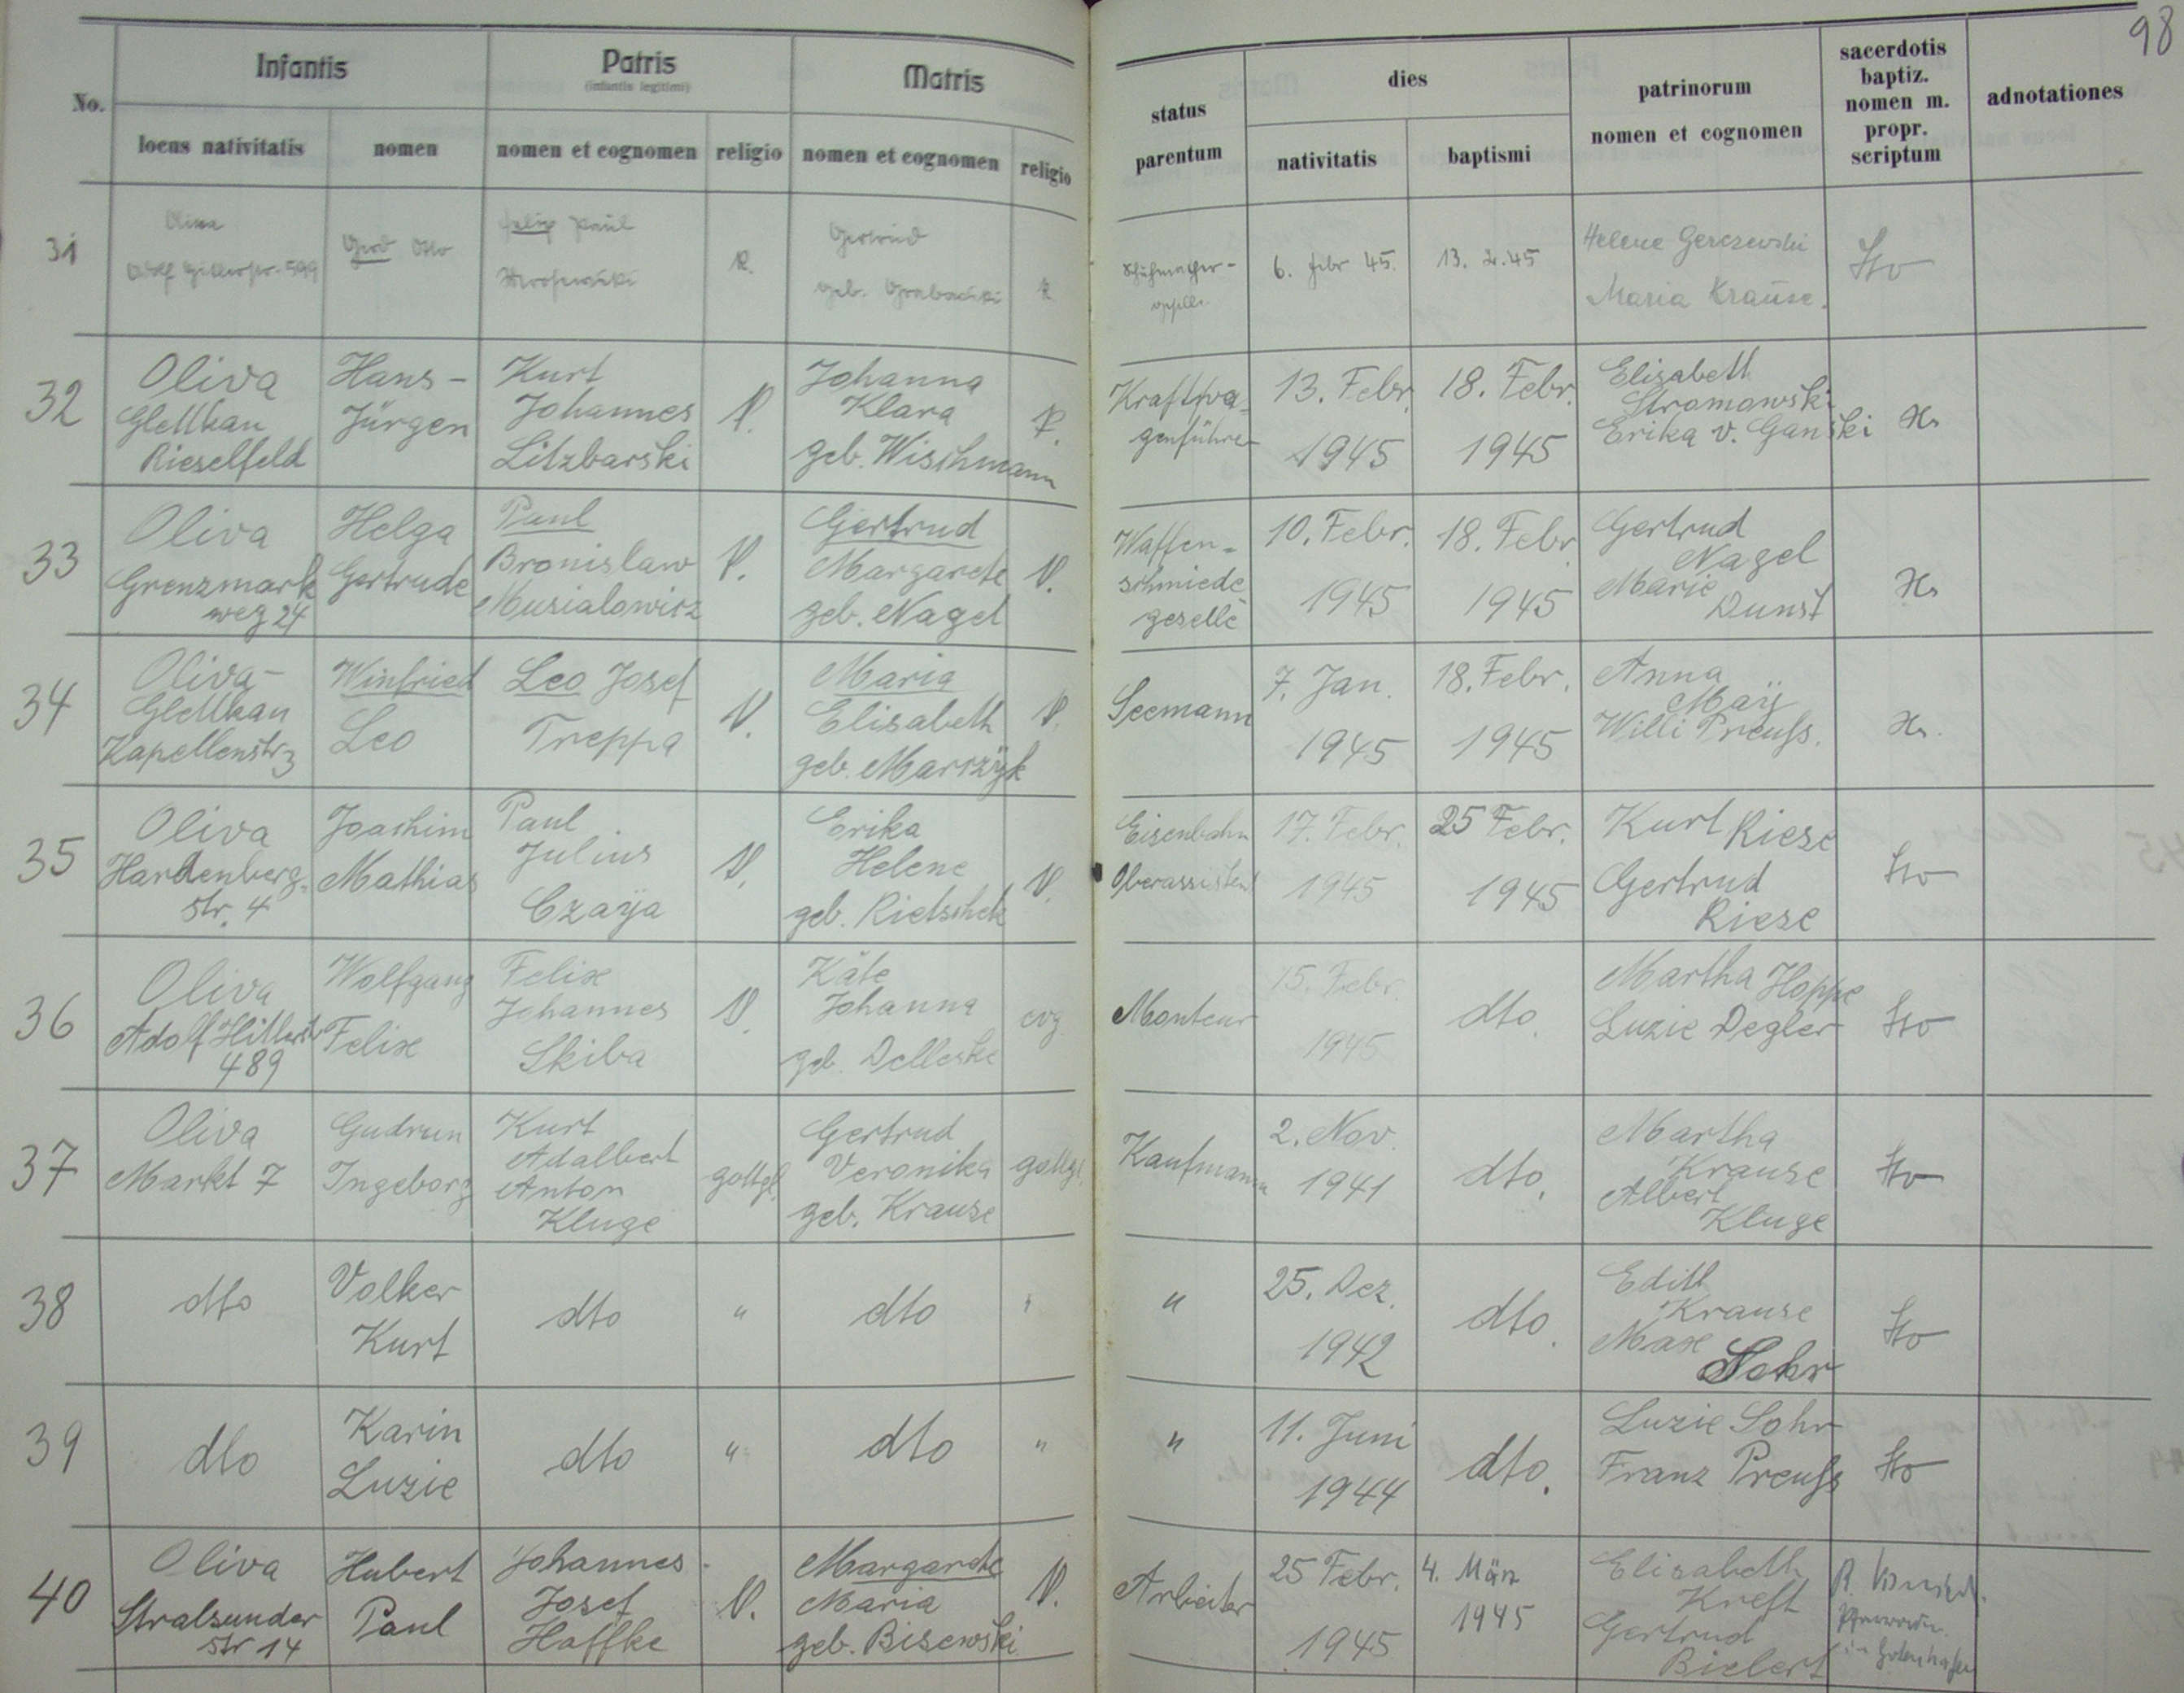 98
No.
Infantis
Patris
(infantis legitimi)
Matris
status
parentum
dies
patrinorum
nomen et cognomen
sacerdotis
baptiz.
nomen m.
propr.
scriptum
adnotationes
locus nativitatis
nomen
nomen et cognomen
religio
nomen et cognomen
religio
nativitatis
baptismi
31
Oliva
Adolf Hitlerstr. 599
Gerd Otto
Paul
R.
Gertrud
geb. Grabowski
R
Schuhmacher-
6. Febr 45.
13. 2. 45
Helene Gerczewski
Maria Krause.
32
Oliva
Glettkau
Rieselfeld
Hans-
Jürgen
Kurt
Johannes
Litzbarski
R.
Johanna
Klara
geb. Wischmann
R.
Kraftwa-
genführer
13. Febr.
1945
18. Febr.
1945
Elisabeth
Stromowski
Erika v. Ganski
33
Oliva
Grenzmark
weg 24
Helga
Gertrude
Paul
Bronislaw
Musialowicz
R.
Gertrud
Margarete
geb. Nagel
R.
Waffen-
schmiede
geselle
10. Febr.
1945
18. Febr
1945
Gertrud
Nagel
Marie
Dunst
34
Oliva-
Glettkau
Kapellenstr 3
Winfried
Leo
Leo Josef
Treppa
R.
Maria
Elisabeth
geb. Marczÿk
R.
Seemann
7. Jan.
1945
18. Febr.
1945
Anna
Maÿ
Willi Preuß.
35
Oliva
Hardenberg-
str. 4
Joachim
Mathias
Paul
Julius
Czaÿa
R.
Erika
Helene
geb. Rietschek
R.
Eisenbahn
Oberassistent
17. Febr.
1945
25 Febr.
1945
Kurt Riese
Gertrud
Riese
36
Oliva
Adolf Hitlerstr
489
Wolfgang
Felix
Felix
Johannes
Skiba
R.
Käte
Johanna
geb. Delleske
evg.
Monteur
15. Febr.
1945
dto.
Martha Hoppe
Luzie Degler
37
Oliva
Markt 7
Gudrun
Ingeborg
Kurt
Adalbert
Anton
Kluge
gottgl.
Gertrud
Veronika
geb. Krause
gottgl.
Kaufmann
2. Nov.
1941
dto.
Martha
Krause
Albert
Kluge
38
dto
Volker
Kurt
dto
"
dto
"
"
25. Dez.
1942
dto.
Edith
Krause
Max
Sohr
39
dto
Karin
Luzie
dto
"
dto
"
"
11. Juni
1944
dto.
Luzie Sohr
Franz Preuß
40
Oliva
Stralsunder
str 14
Hubert
Paul
Johannes
Josef
Haffke
R.
Margarete
Maria
geb. Bisewski
R.
Arbeiter
25 Febr.
1945
4. März
1945
Elisabeth
Kreft
Gertrud
Bielert
in Gotenhafen